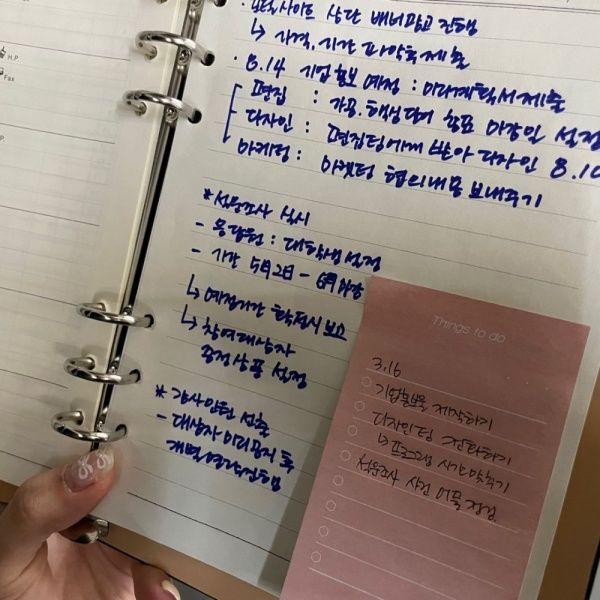 H.P
Fax
사이트 상단 배너광고 진행
↳ 사격, 시간 파악후 제출
· 8.14 기업홍보 예정 : 미래계획서 제출
편집 : 가공. 핵심단어 참고 마감일 설정
디자인 : 편집팀에게 받아 디자인 8.10
마케팅 : 마켓팅 협의내용 보내주기
*설문조사 실시
- 응답원 : 대학생 설정
- 기간 5月2日 - 6月 마감
↳ 예정기간 확정시 보고
↳ 참여대상자
증정상품 설정
* 강사인원 선출
- 대상자 미리 공지 후
개별연락진행
Things to do
3.16
기업홍보물 제작하기
디자인팀 전화하기
↳ 프로그램 시간 맞추기
설문조사 사전 어플 점검